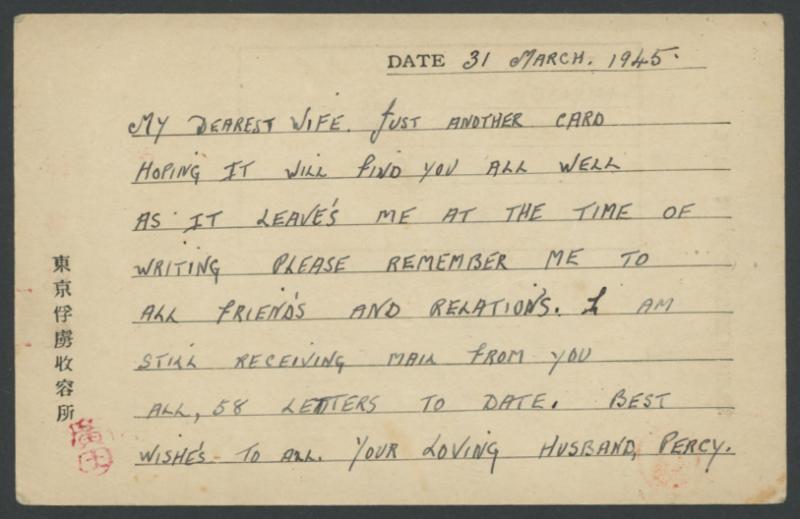 DATE 31 MARCH. 1945.
MY DEAREST WIFE. JUST ANOTHER CARD
HOPING IT WILL FIND YOU ALL WELL
AS IT LEAVE'S ME AT THE TIME OF
WRITING PLEASE REMEMBER ME TO
ALL FRIEND'S AND RELATION'S. I AM
STILL RECEIVING MAIL FROM YOU
ALL, 58 LETTERS TO DATE. BEST
WISHE'S TO ALL. YOUR LOVING HUSBAND, PERCY.
東京俘虜收容所